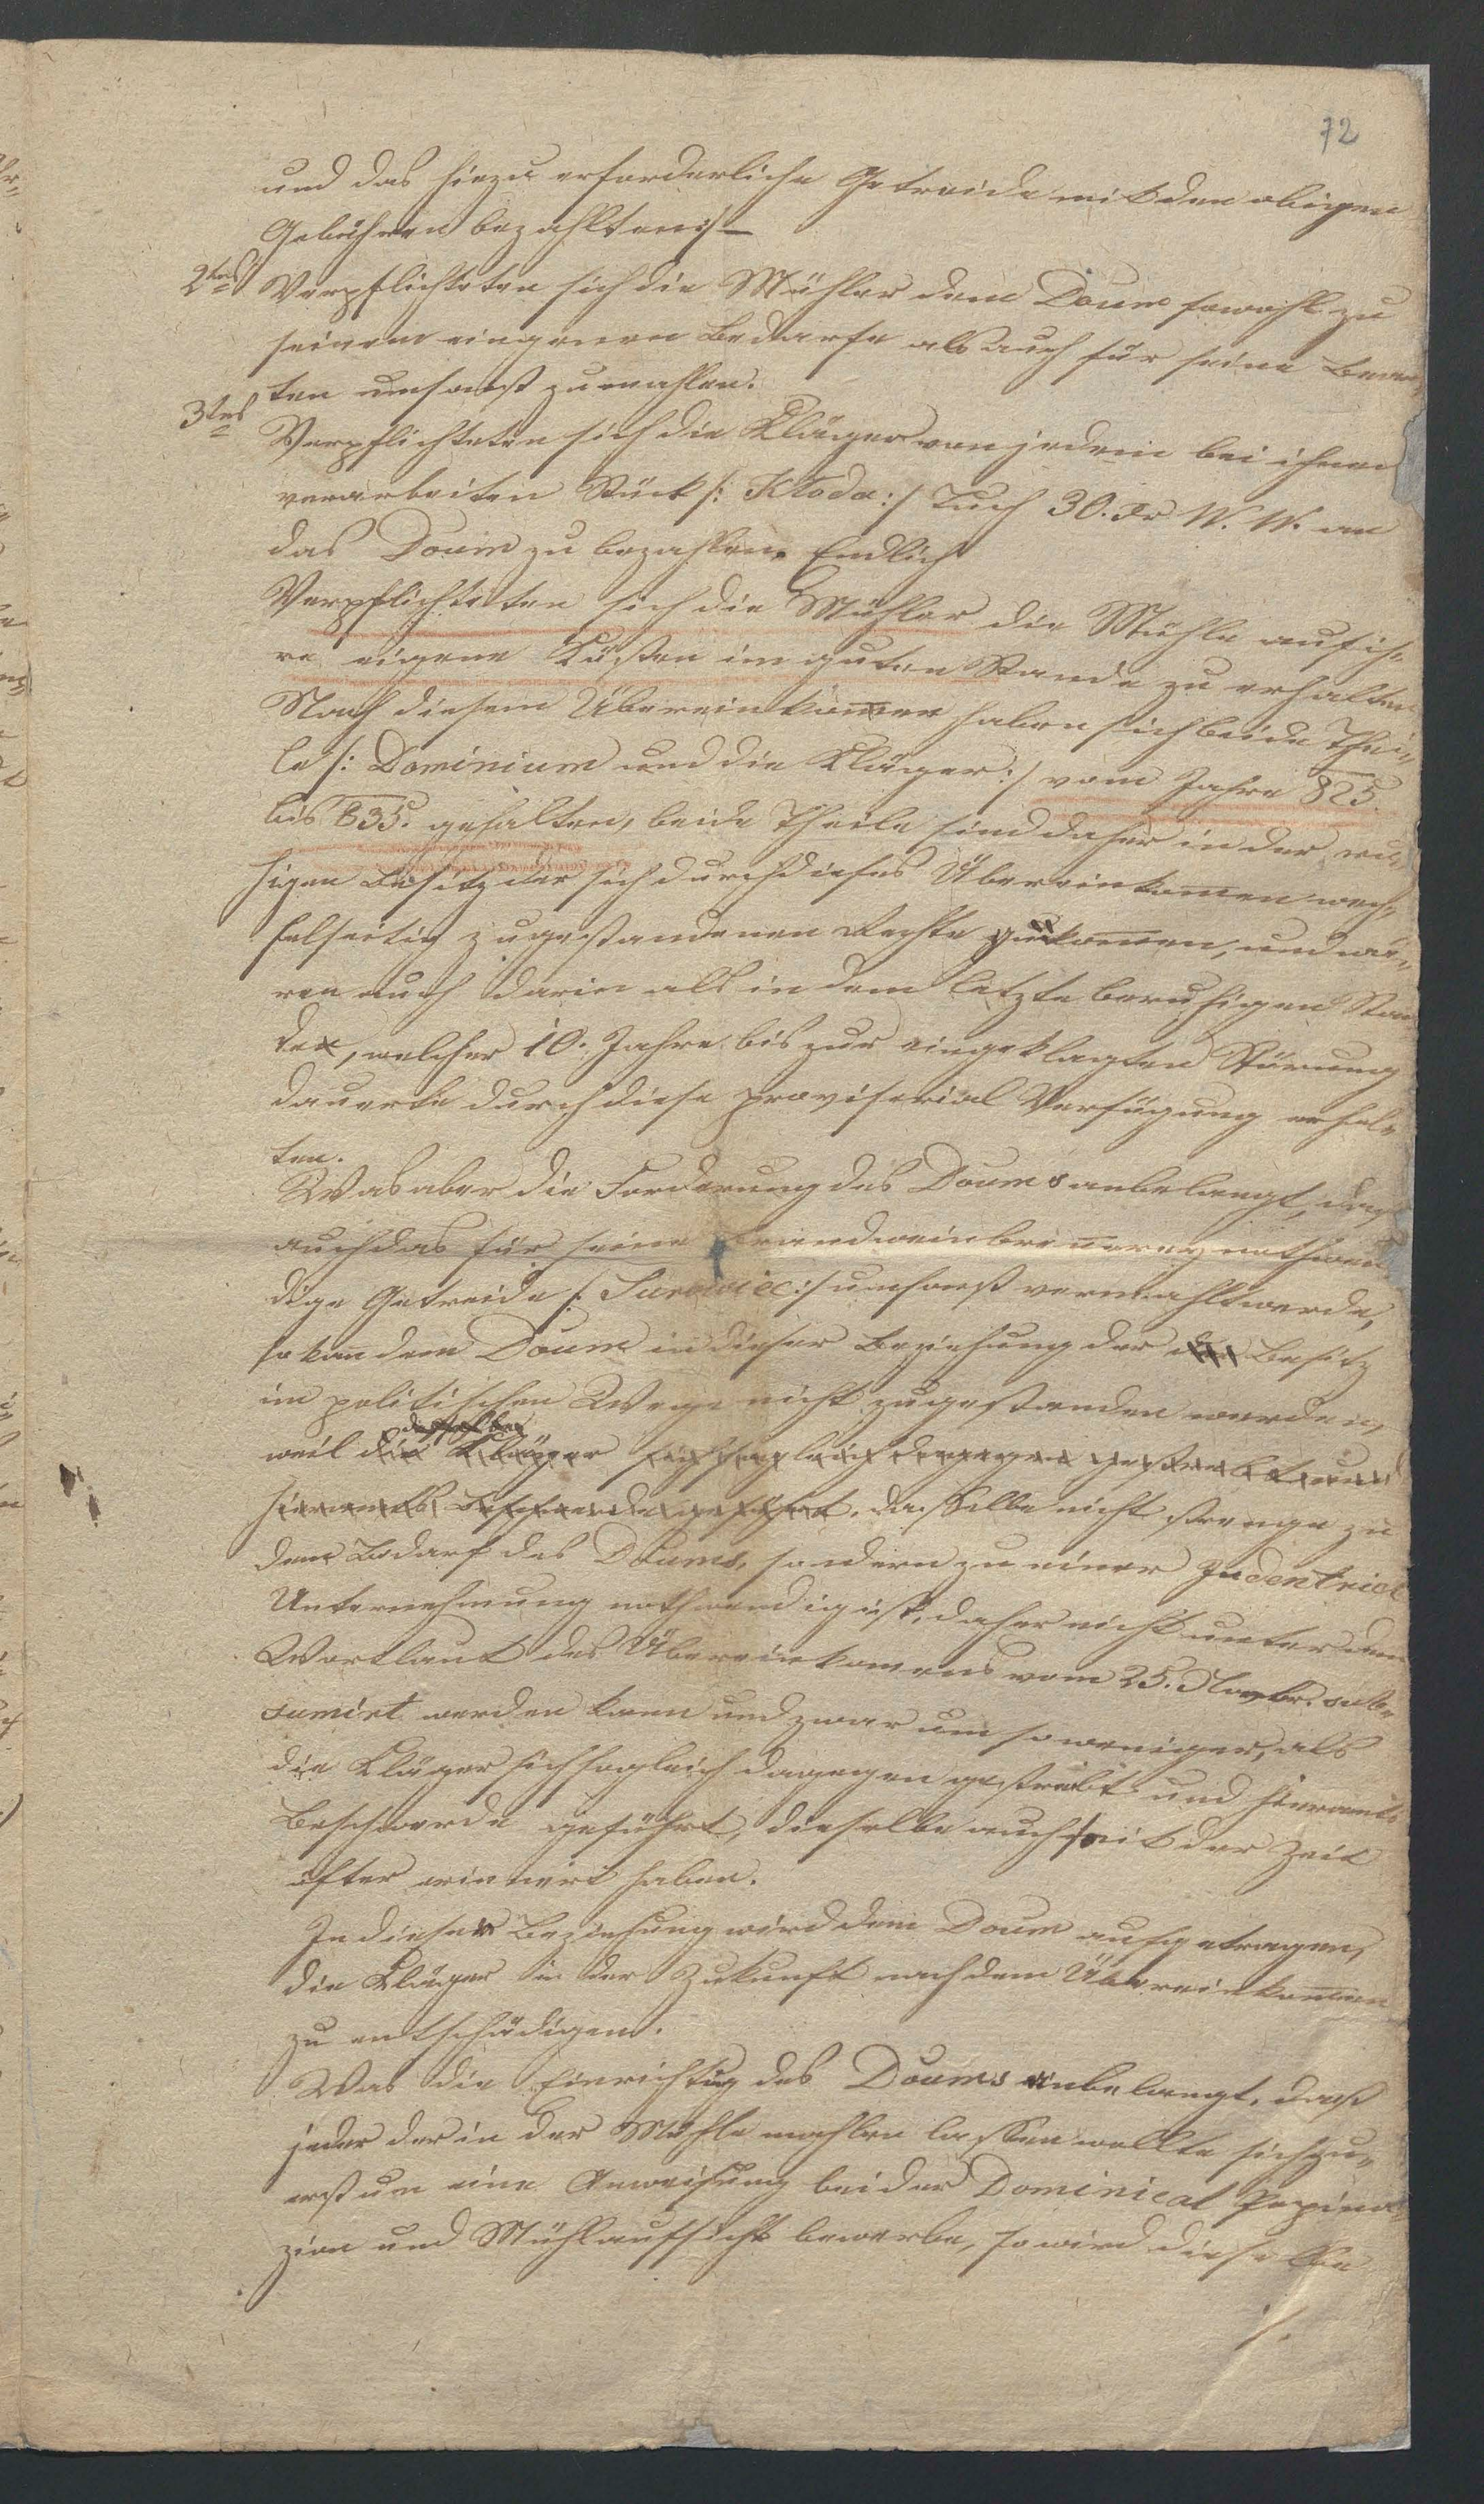 72
und das hiezu erforderliche Getreide mit den obigen
Gebühren bezahlten :/
2tens Verpflichteten sich die Mühler dem Doum sowohl zu
seinem eingenen Bedarfe als auch für seine Beam¬
ten umsonst zu mahlen.
3tens Verpflichteten sich die Kläger von jedem bei ihnen
verarbeiten Stück /: Kłoda :/ Tuch 30. Xr W. W. an
das Doum zu bezahlen. Endlich
Verpflichteten sich die Mühler die Mühle auf ih¬
re eigene Kosten im guten Stande zu erhalten
Nach diesem Übereinkomen haben sich beide Thei¬
le /: Dominium und die Kläger :/ vom Jahre 825.
bis 835. gehalten, beide Theile sind daher in den ru¬
higen Besitz der sich durch dieses Übereinkomen wech¬
selseitig zugestandenen Rechte gekomen, und wä¬
ren auch darin als in dem letzten beruhigen Stan
de, welcher 10. Jahre bis zur eingeklagten Störung
dauerte durch diese provisorial Verfügung erhal¬
ten.
Was aber die Forderung des Doums anbelangt, daß
auch das für seine Brandweinbrenerey nothwen
dige Getreide /: Surowiec :/ umsonst vermahlt werde,
so kan dem Doum in dieser Beziehung der Besitz
im politischen Wege nicht zugestanden werden,
dasselbe
weil die Kläger sich sogleich dagegen gestrebt und
hieramts Beschwerde geführt, dasselbe nicht strenge zu
dem Bedarf des Doums, sondern zu einer Industrial
Unternehmung nothwendig ist, daher nicht unter den
Wortlaut des Übereinkomens vom 25. Novbr. sub¬
sumirt werden kann und zwar um so weniger, als
die Kläger sich sogleich dagegen gestrebt und hieramts
Beschwerde geführt, dieselbe auch seit der Zeit
öfter erinnert haben.
In dieser Beziehung wird dem Doum aufgetragen,
die Kläger in der Zukunft nach dem Übereinkomen
zu entschädigen.
Was die Einrichtug des Doums anbelangt, daß
jeder der in der Mühle mahlen lassen wollte sich zu¬
erst um eine Anweisung bei der Dominical Propina
zion und Mühlaufsicht bewerbe, so wird dieselbe
./.